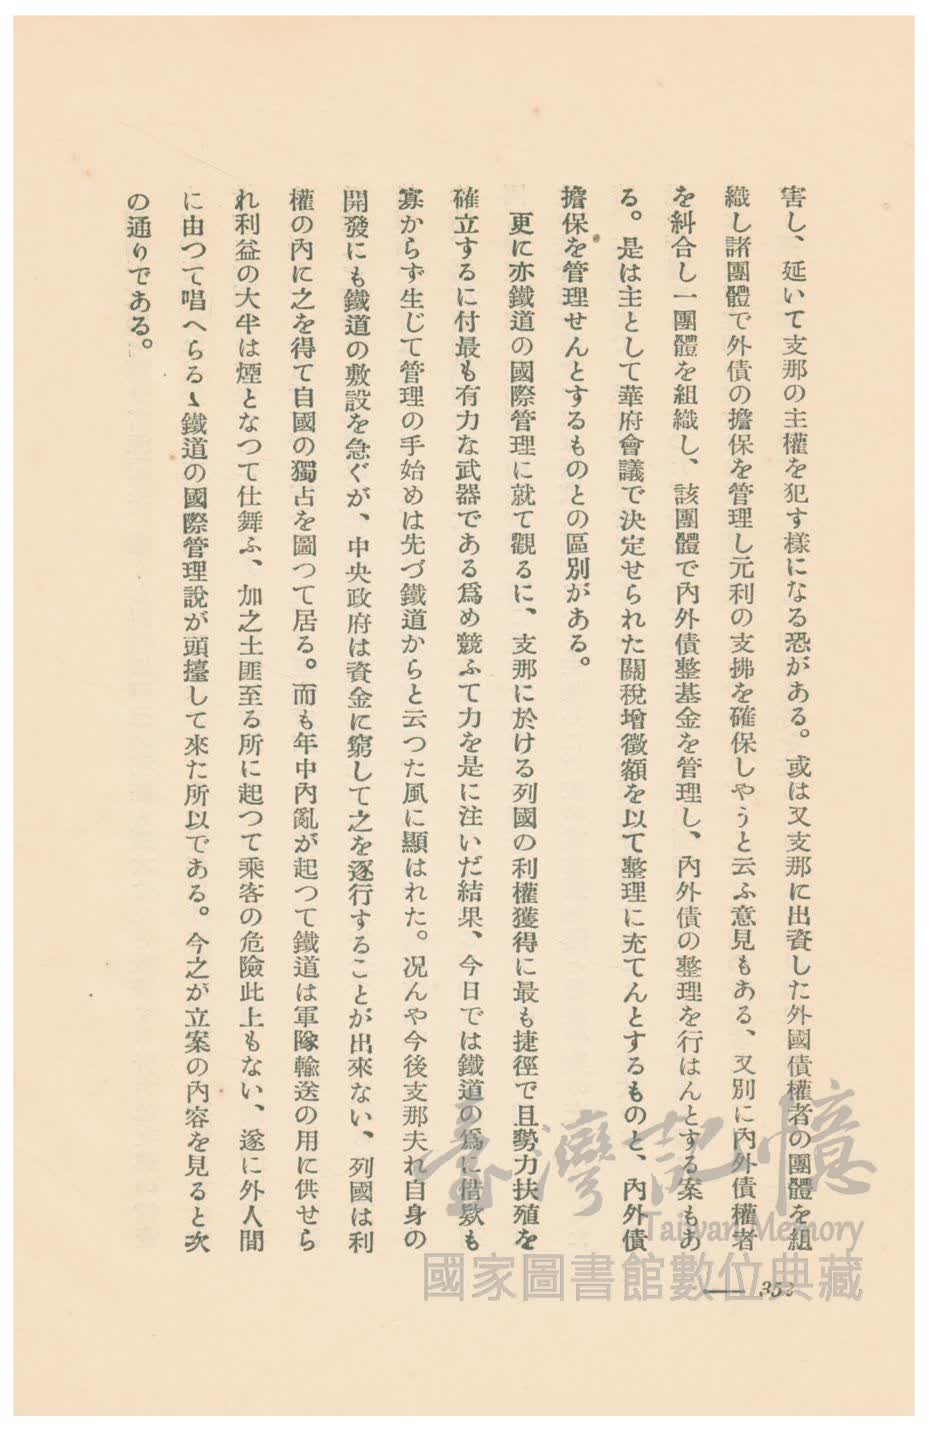 害し、延いて支那の主權を犯す樣になる恐がある。或は又支那に出資した外國債權者の團體を組
織し諸團體で外債の擔保を管理し元利の支拂を確保しやうと云ふ意見もある、又別に內外債權者
を糾合し一團體を組織し、該團體で內外債整基金を管理し、內外債の整理を行はんとする案もあ
る。是は主として華府會議で決定せられた關稅增徵額を以て整理に充てんとするものと、內外債
擔保を管理せんとするものとの區別がある。
更に亦鐵道の國際管理に就て觀るに、支那に於ける列國の利權獲得に最も捷徑で且勢力扶殖を
確立するに付最も有力な武器である爲め競ふて力を是に注いだ結果、今日では鐵道の爲に借欵も
寡からず生じて管理の手始めは先づ鐵道からと云つた風に顯はれた。況んや今後支那夫れ自身の
開發にも鐵道の敷設を急ぐが、中央政府は資金に窮して之を逐行することが出來ない、列國は利
權の內に之を得て自國の獨占を圖つて居る。而も年中內亂が起つて鐵道は軍隊輸送の用に供せら
れ利益の大半は煙となつて仕舞ふ、加之土匪至る所に起つて乘客の危險此上もない、遂に外人間
に由つて唱へらるゝ鐵道の國際管理說が頭擡して來た所以である。今之が立案の內容を見ると次
の通りである。
352
臺灣記憶
Taiwan Memory
國家圖書館數位典藏